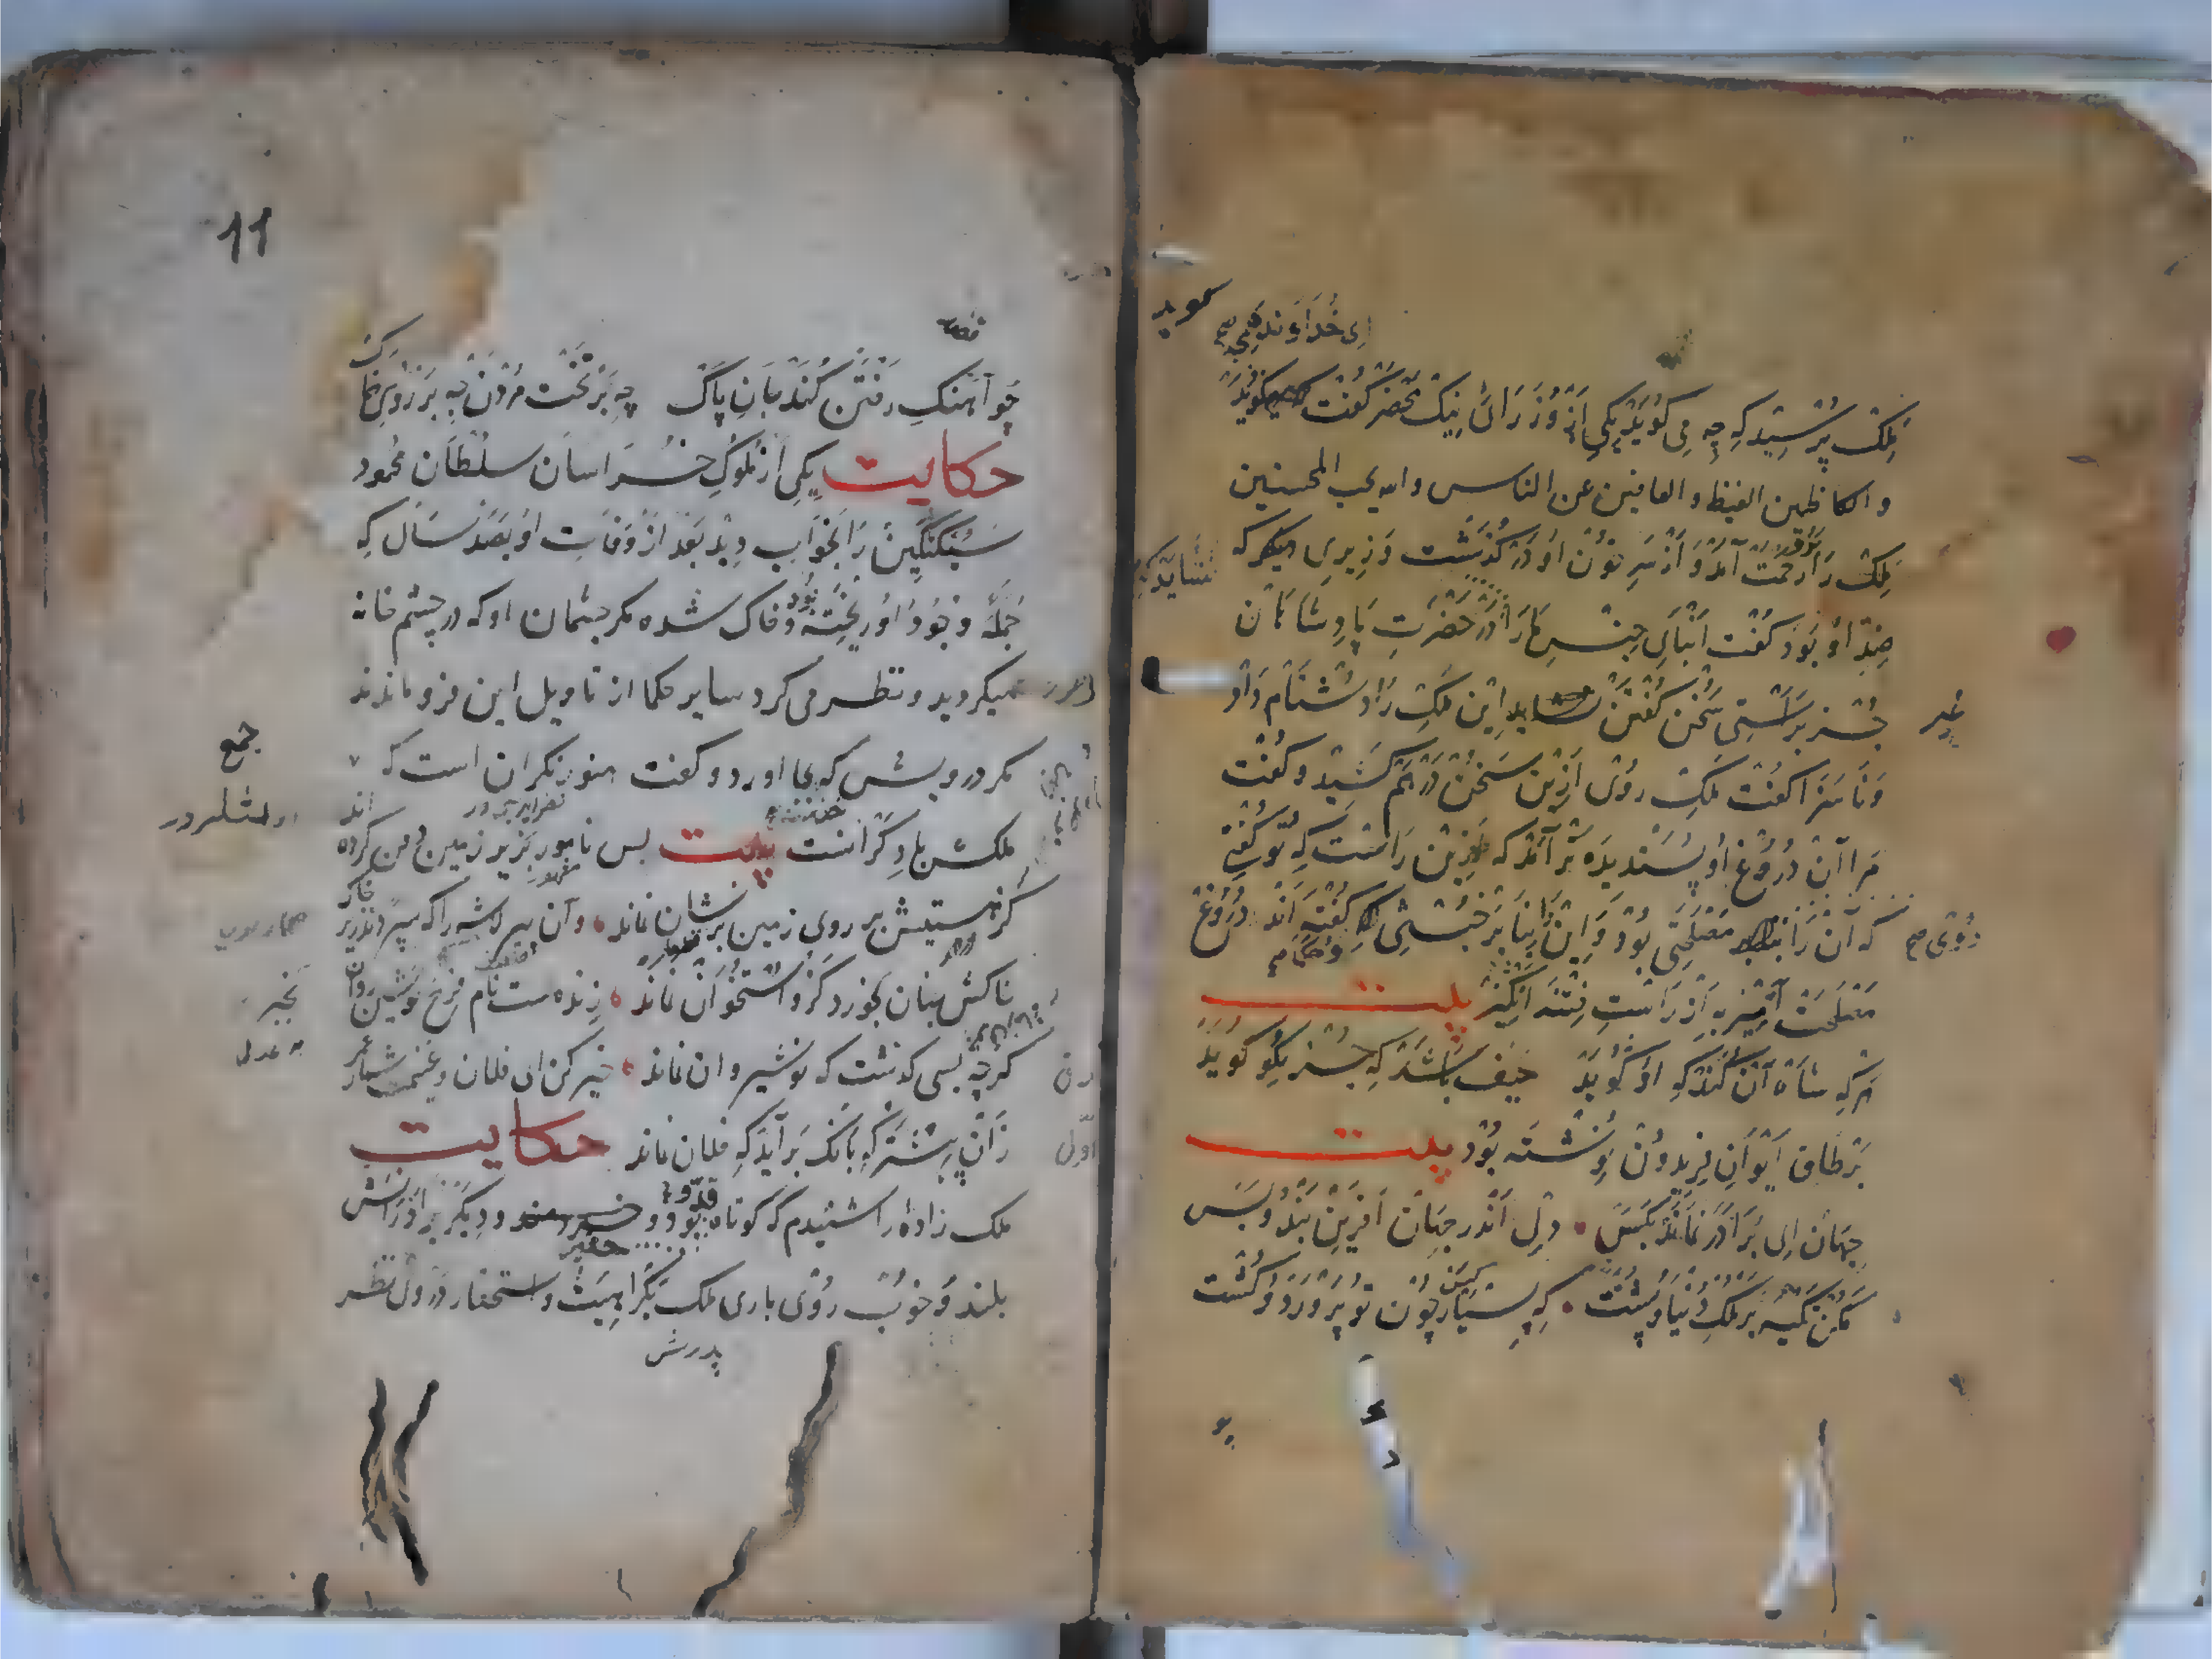 ای خداوند
ملک پرسید که چه می گوید یکی از وزرای نیک محضر گفت میگوید
والکاظمین الغیظ و العافین عن الناس والله یحب المحسنین
ملک را رحمت آمد و از سر خون او در گذشت وزیری دیگر که
ضد او بود گفت ابنای جنس ما را در حضرت پادشاهان
جز براستی سخن گفتن نشاید این ملک را دشنام داد
و ناسزا گفت ملک روی ازین سخن در هم کشید و گفت
مرا آن دروغ او پسندیده تر آمد که ازین راست که تو گفتی
که آن را مصلحتی بود و این را بنا بر خبثی گفته اند دروغ
مصلحت آمیز به از راست فتنه انگیز بیت
هر که شاه آن کند که او گوید حیف باشد که جز نکو گوید
بر طاق ایوان فریدون نوشته بود بیت
جهان ای برادر نماند بکس دل اندر جهان آفرین بند و بس
مکن تکیه بر ملک دنیا و پشت که بسیار کس چون تو پرورد و کشت
11
چو آهنک رفتن کند جان پاک چه بر تخت مردن چه بر روی خاک
حکایت یکی از ملوک خراسان سلطان محمود
سبکتکین را بخواب دید بعد از وفات او بصد سال که
جمله وجود او ریخته بود و خاک شده مکر چشمان او که در چشم خانه
میکردید و نظر می کرد سایر حکما از تاویل این فرو ماندند
مکر درویش که بجا اورد و کفت هنوز نکران است که
ملکش با دکرانست بیت بس نامور بزیر زمین دفن کرده اند
کز هستیش بر روی زمین بر نشان نماند و آن پیر لاشه را که سپردند زیر خاک
خاکش چنان بخورد کزو استخوان نماند زنده ست نام فرخ نوشین روان
کرچه بسی کذشت که نوشیروان نماند خیر کن ای فلان و غنیمت شمار عمر
زان پیشتر که بانک بر آید که فلان نماند حکایت
ملک زاده را شنیدم که کوتاه قد بود و حقیر و دیکر برادرانش
بلند و خوب روی باری ملک بکراهیت و استحقار در وی نظر
پدرش